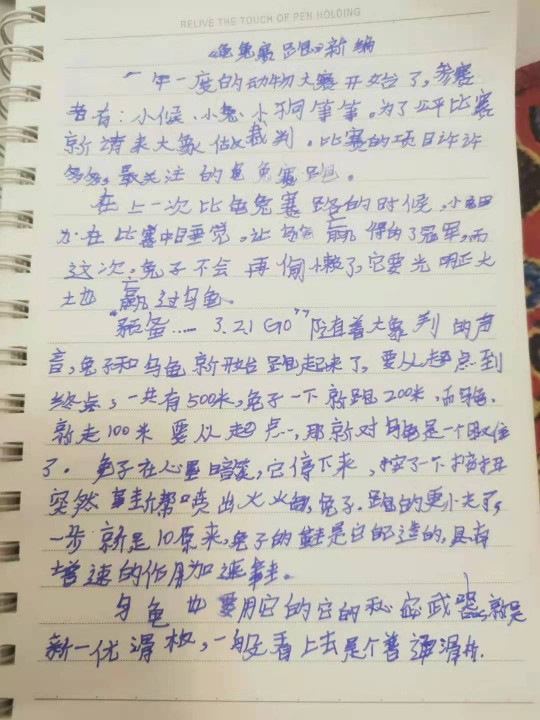 RELIVE THE TOUCH OF PEN HOLDING
《龟兔赛跑》新编
一年一度的动物大赛开始了,参赛
者有:小候、小兔、小狗等等。为了公平比赛
就请来大象做裁判。比赛的项目许许
多多,最关注的龟兔赛跑。
在上一次比龟兔赛跑的时候,小
在比赛中睡觉,让乌龟赢得的了冠军,而
这次,兔子不会再偷懒了,它要光明正大
土地赢过乌龟。
"预备…… 3.2.1 GO"随着大象判的声
音,兔子和乌龟就开始跑起来了,要从起点到
终点,一共有500米,兔子一下就跑200米,而乌龟
就走100米要从起点,那就对乌龟是一个
了。兔子在心里暗笑,它停下来,按了一下按扭
突然鞋帮喷出火,兔子跑的更了,
一步就是10原来,兔子的鞋是它的造的,具有
增速的作用加速鞋。
乌龟也要用它的它的秘密武器,就是
新一优滑板,一般看上去是个普通滑板.